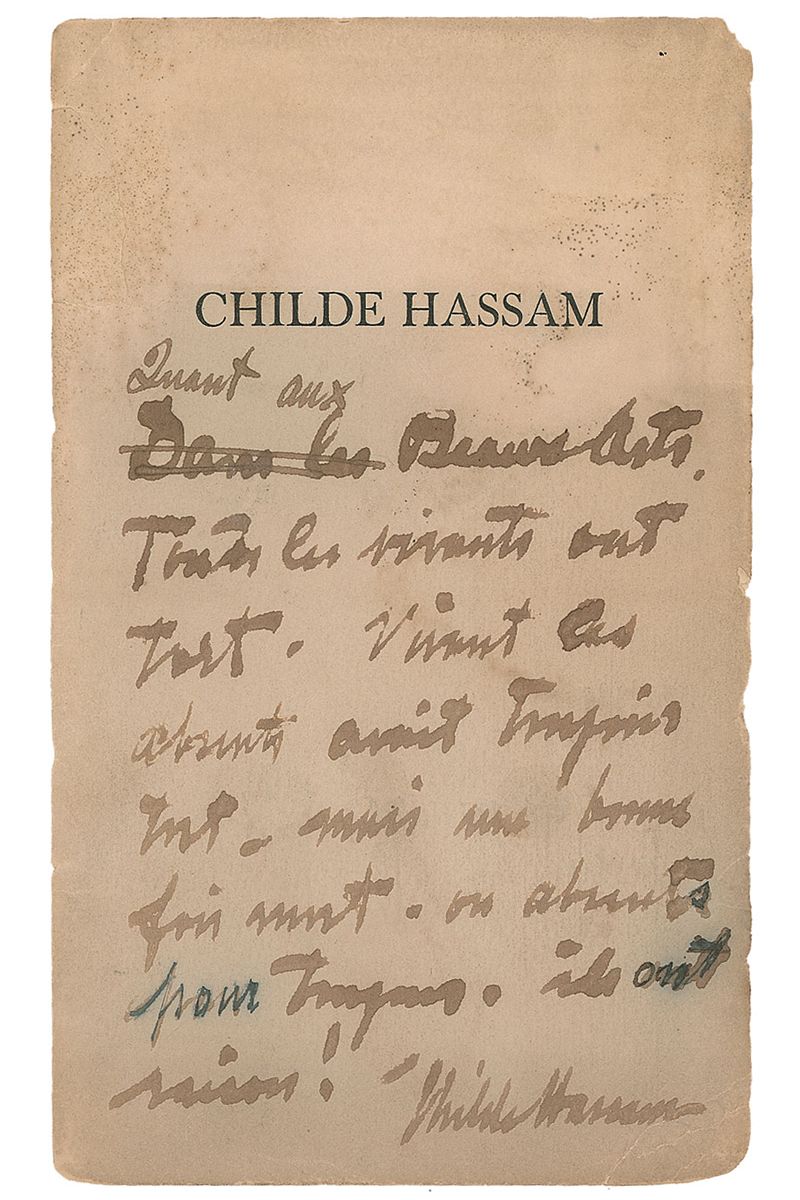 CHILDE HASSAM
Quant aux
Dans les Beaux Arts.
Touts les vivants ont
tort. Vivent les
absents avait toujours
tort. mais une bonne
fois mort. ou absents
pour toujours. ils ont
raison!
Childe Hassam